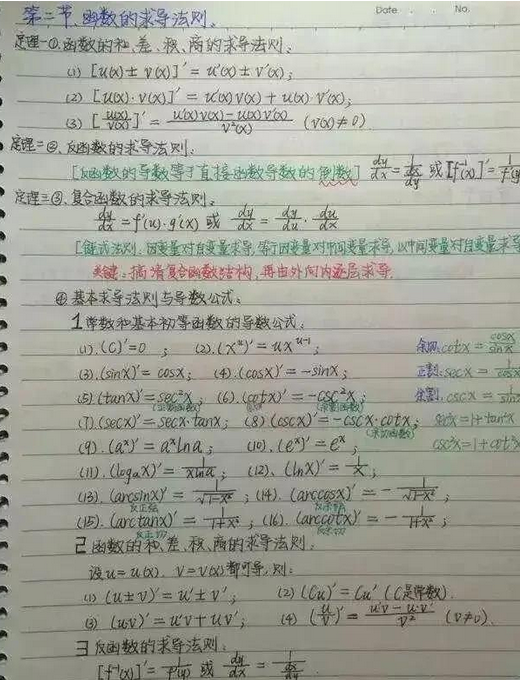 Date No.
第二节、函数的求导法则。
定理一①、函数的和、差、积、商的求导法则。
(1) [u(x) ± v(x)]' = u'(x) ± v'(x);
(2) [u(x)·v(x)]' = u'(x)v(x) + u(x)·v'(x);
(3) [u(x)/v(x)]' = (u'(x)v(x) - u(x)v'(x))/v²(x) (v(x)≠0)
定理二②、反函数的求导法则:
[反函数的导数等于直接函数导数的倒数] dy/dx = 1/(dx/dy) 或 [f⁻¹(x)]' = 1/f'(y)
定理三③、复合函数的求导法则。
dy/dx = f'(u)·g'(x) 或 dy/dx = dy/du · du/dx
[链式法则、因变量对自变量求导,等于因变量对中间变量求导,以中间变量对自变量求导
关键:搞清复合函数结构,再由外向内逐层求导.
④ 基本求导法则与导数公式:
1 常数和基本初等函数的导数公式:
(1).(C)'=0 ; (2).(xᵘ)'=uxᵘ⁻¹; 余切:cotx = cosx/sinx
(3).(sinx)'= cosx; (4).(cosx)'= -sinx; 正割:secx = 1/cosx
(5).(tanx)'= sec²x; (6).(cotx)'= -csc²x; 余割:cscx = 1/sinx
(正割函数) (余割函数)
(7).(secx)'= secx·tanx; (8)(cscx)'= -cscx·cotx; sec²x=1+tan²x
(余切函数)
(9).(aˣ)'= aˣlna; (10).(eˣ)'= eˣ; csc²x=1+cot²x
(11).(logₐx)'= 1/(xlna); (12).(lnx)'= 1/x;
(13).(arcsinx)'= 1/√(1-x²); (14).(arccosx)'= - 1/√(1-x²);
反正弦 反余弦
(15).(arctanx)'= 1/(1+x²); (16).(arccotx)'= - 1/(1+x²);
反正切 反余切
2 函数的和、差、积、商的求导法则:
设u=u(x). v=v(x)都可导,则:
(1) (u±v)'= u'±v'; (2) (Cu)'= Cu' (C是常数).
(3) (uv)'= u'v+uv'; (4) (u/v)'= (u'v-u·v')/v² (v≠0).
3 反函数的求导法则:
[f⁻¹(x)]'= 1/f'(y) 或 dy/dx = 1/(dx/dy)